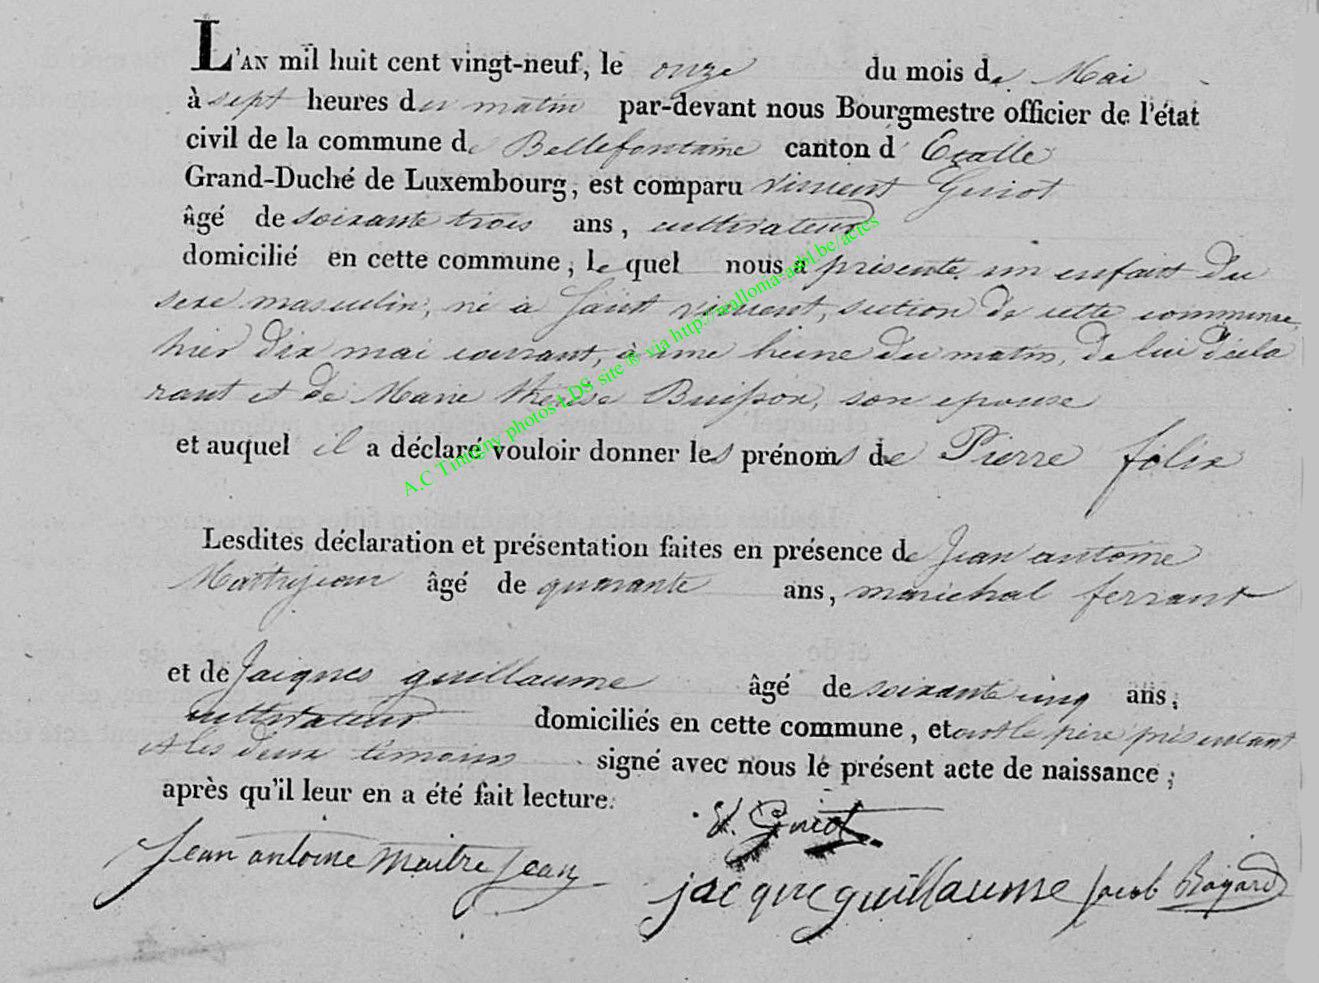 L'AN mil huit cent vingt-neuf, le onze du mois de Mai
à sept heures du matin par-devant nous Bourgmestre officier de l'état
civil de la commune de Bellefontaine canton d' Etalle
Grand-Duché de Luxembourg, est comparu vincent Guiot
âgé de soixante trois ans, cultivateur
domicilié en cette commune, le quel nous a présenté un enfant du
sexe masculin, né à Saint vincent, section de cette commune,
hier dix mai courrant, à une heure du matin, de lui décla
rant et de Marie thérèse Buisson, son epouse
et auquel il a déclaré vouloir donner les prénoms de Pierre félix
Lesdites déclaration et présentation faites en présence de Jean antoine
Maitrejean âgé de quarante ans, maréchal ferrant
et de Jacques guillaume âgé de soixante cinq ans,
cultivateur domiciliés en cette commune, et ont le père présentant
et les deux témoins signé avec nous le présent acte de naissance,
après qu'il leur en a été fait lecture.
V. Guiot
Jean antoine Maitre Jean
jacque guillaume Jacob
A.C Tintigny photos LDS site ® via http://wallonia-asbl.be/actes